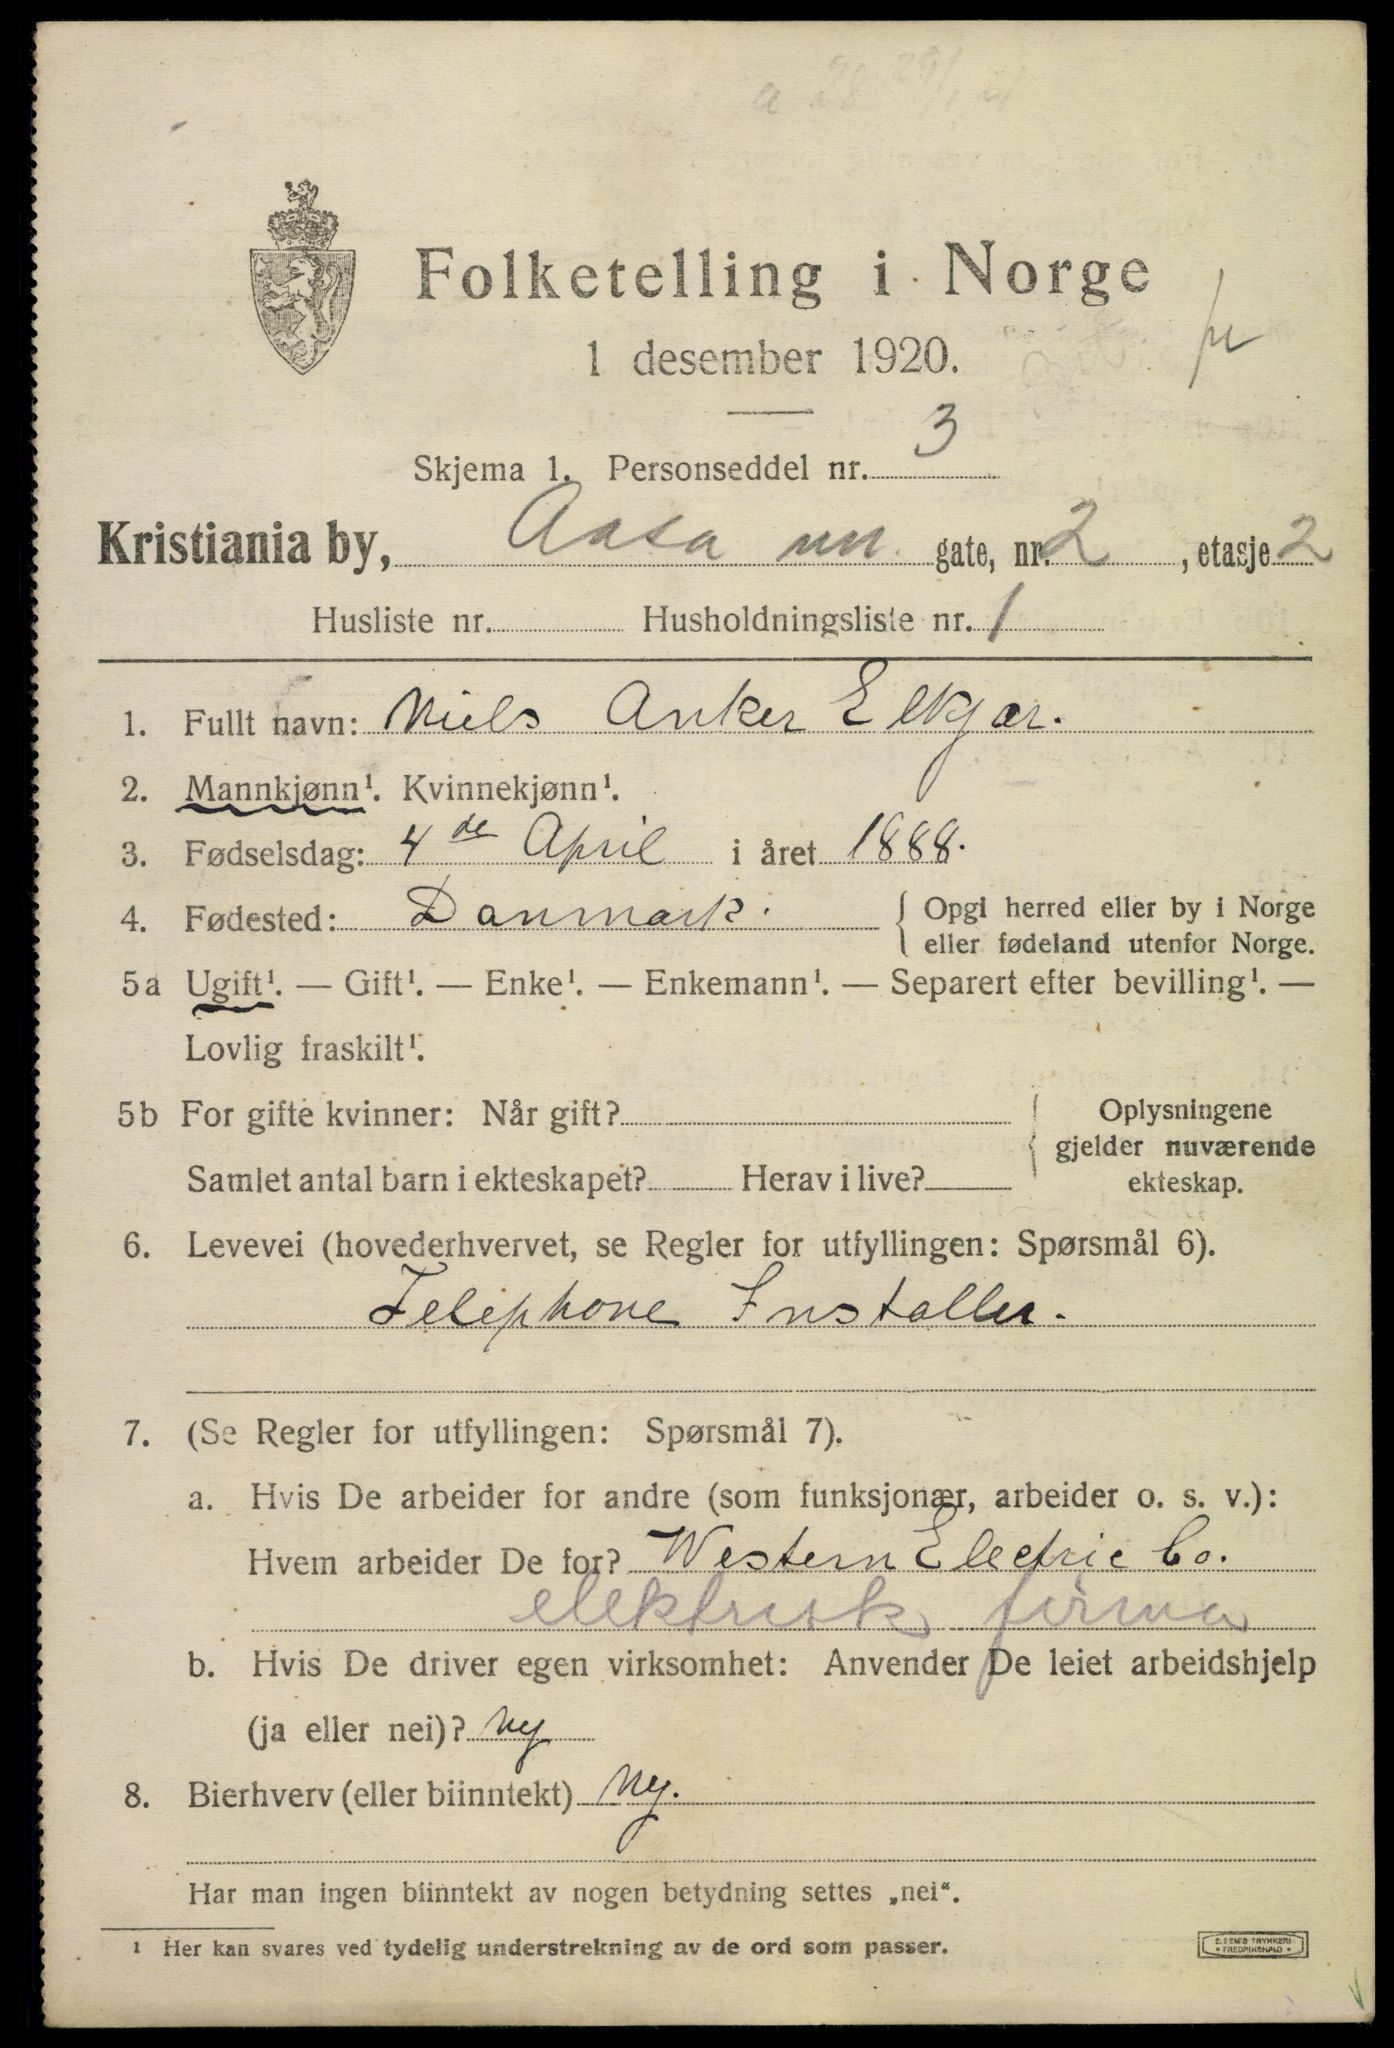 Folketelling i Norge
1 desember 1920.
Skjema 1. Personseddel nr. 3
Kristiania by, Aasa vn. gate, nr. 2, etasje 2
Husliste nr. Husholdningsliste nr. 1
1. Fullt navn: Niels Anker Elkjær.
2. Mannkjønn¹. Kvinnekjønn¹.
3. Fødselsdag: 4de April i året 1888.
4. Fødested: Danmark. { Opgi herred eller by i Norge
eller fødeland utenfor Norge.
5a Ugift¹. — Gift¹. — Enke¹. — Enkemann¹. — Separert efter bevilling¹. —
Lovlig fraskilt¹.
5b For gifte kvinner: Når gift? { Oplysningene
gjelder nuværende
ekteskap.
Samlet antal barn i ekteskapet? Herav i live?
6. Levevei (hovederhvervet, se Regler for utfyllingen: Spørsmål 6).
Telephone Installer.
7. (Se Regler for utfyllingen: Spørsmål 7).
a. Hvis De arbeider for andre (som funksjonær, arbeider o. s. v.):
Hvem arbeider De for? Western Electric Co.
elektrisk firma
b. Hvis De driver egen virksomhet: Anvender De leiet arbeidshjelp
(ja eller nei)? ny
8. Bierhverv (eller biinntekt) ny.
Har man ingen biinntekt av nogen betydning settes „nei“.
¹ Her kan svares ved tydelig understrekning av de ord som passer.
E. SEM'S TRYKKERI
* FREDRIKSHALD *